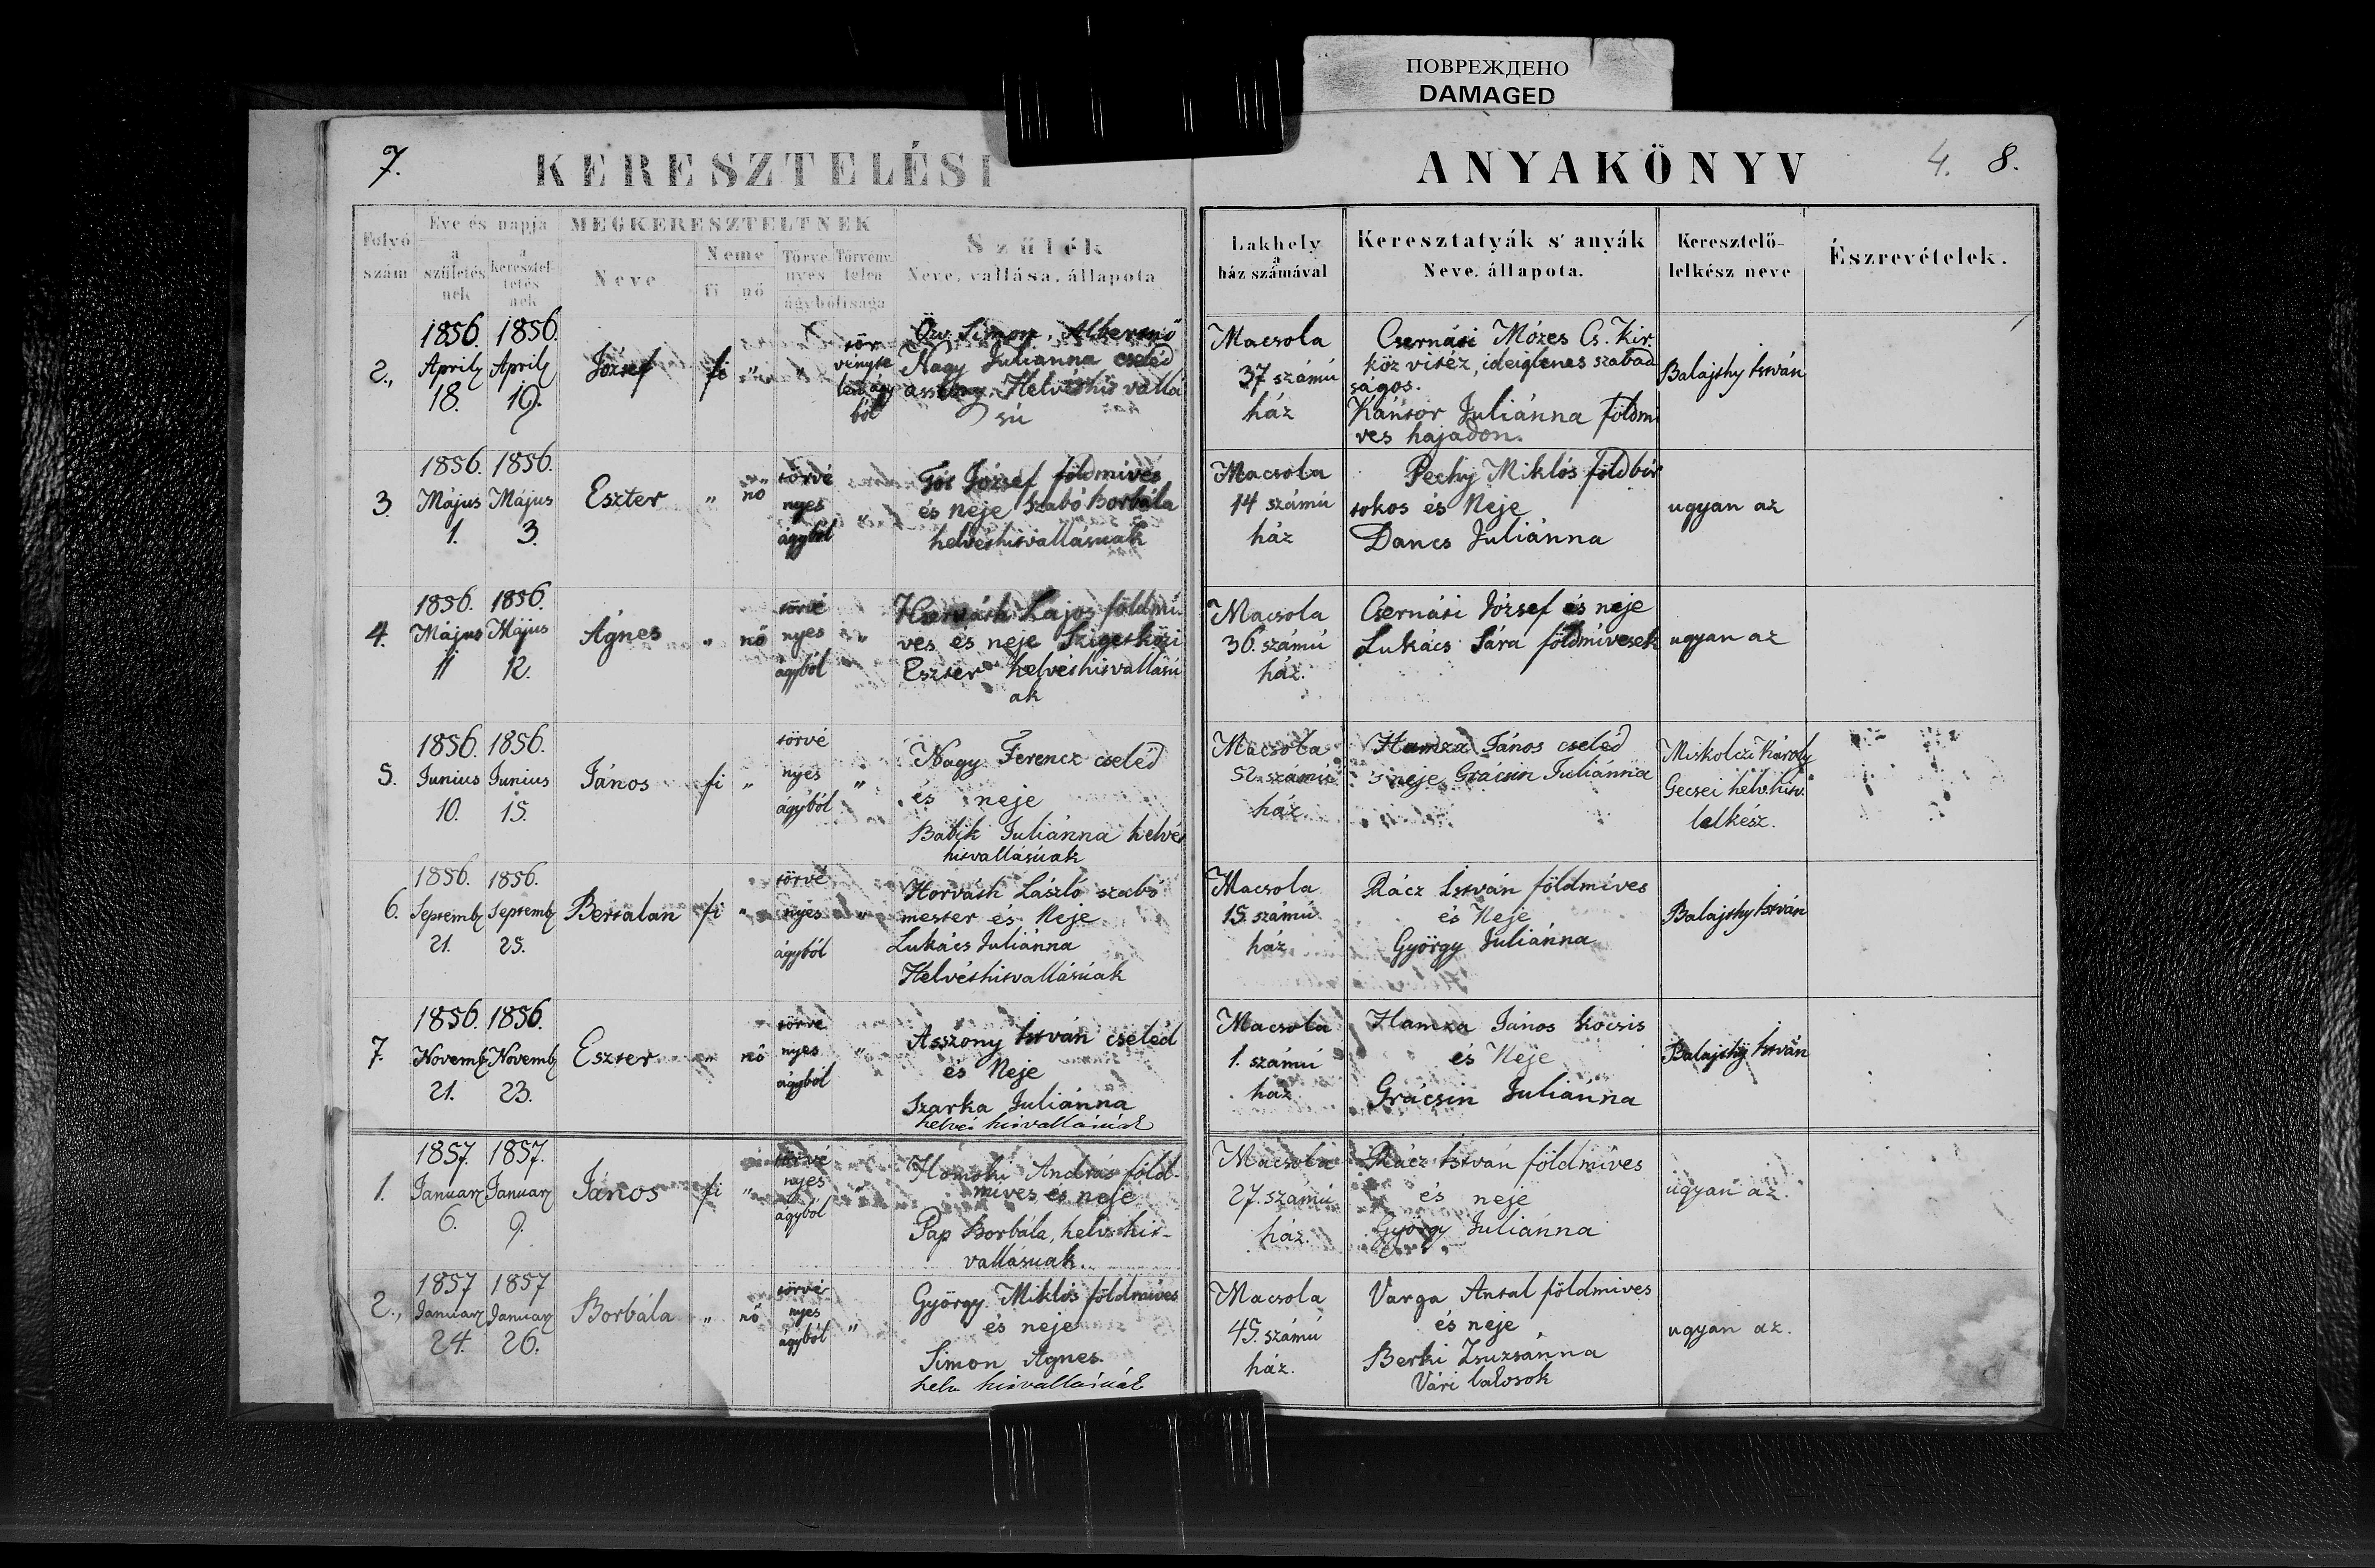 ПОВРЕЖДЕНО
DAMAGED
7.
KERESZTELÉSI
ANYAKÖNYV
4. 8.
Folyó szám
Éve és napja
a születés nek
a keresztel- tetés nek
MEGKERESZTELTNEK
Neve
Neme
fi
nő
Törve nyes
Törvény telen
ágybóli sága
Szülék
Neve, vallása, állapota
Lakhely
a
ház számával
Keresztatyák s' anyák
Neve, állapota.
Keresztelő-
lelkész neve
Észrevételek.
2.,
1856. 1856.
April April
18. 19.
József
fi
"
"
tör
vényte
len ágy
ból
Özv. Simon Albertné
Nagy Juliánna cseléd
asszony Helvét hit vallá
sú
Macsola
37 számú
ház
Csernási Mózes Cs. Kir
köz vitéz, ideiglenes szabad
ságos.
Kántor Juliánna földmi
ves hajadon.
Balajthy István
3.
1856. 1856.
Május Május
1. 3.
Eszter
"
nő
törvé
nyes
ágyból
"
Tót József földmives
és neje Szabó Borbála
helvét hitvallásuak
Macsola
14 számú
ház
Pechy Miklós földbir
tokos és Neje
Dancs Juliánna
ugyan az
4.
1856. 1856.
Május Május
11 12.
Ágnes
"
nő
törvé
nyes
ágyból
"
Horváth Lajos földmi
ves és neje Szigetközi
Eszter helvét hitvallású
ak
Macsola
36. számú
ház.
Csernási József és neje
Lukács Sára földmívesek
ugyan az
5.
1856. 1856.
Junius Junius
10. 15.
János
fi
"
törvé
nyes
ágyból
"
Nagy Ferencz cseléd
és neje
Babik Juliánna helvét
hitvallásúak
Macsola
52. számú
ház
Hamza János cseléd
s neje Grácsin Juliánna
Miskolczi Károly
Gecsei helv. hitv.
lelkész.
6.
1856. 1856.
Septemb Septemb
21. 25.
Bertalan
fi
"
törvé
nyes
ágyból
"
Horváth László szabó
mester és Neje
Lukács Juliánna
Helvét hitvallásúak
Macsola
15. számú
ház
Rácz István földmíves
és Neje
György Juliánna
Balajthy István
7.
1856. 1856.
Novemb Novemb
21. 23.
Eszter
"
nő
törvé
nyes
ágyból
"
Asszony István cseléd
és Neje
Szarka Juliánna
helvét hitvallásúak
Macsola
1. számú
ház
Hamza János kocsis
és Neje
Grácsin Juliánna
Balajthy István
1.
1857. 1857.
Januar Januar
6. 9.
János
fi
"
törvé
nyes
ágyból
"
Homoki András föld-
míves és neje
Pap Borbála, helv. hit-
vallásuak.
Macsola
27. számú
ház.
Rácz István földmíves
és neje
György Juliánna
ugyan az.
2.,
1857 1857
Januar Januar
24. 26.
Borbála
"
nő
törvé
nyes
ágyból
"
György Miklós földmíves
és neje
Simon Ágnes.
helv hitvallásúak
Macsola
45. számú
ház.
Varga Antal földmives
és neje
Berki Zsuzsánna
Vári lakosok
ugyan az.